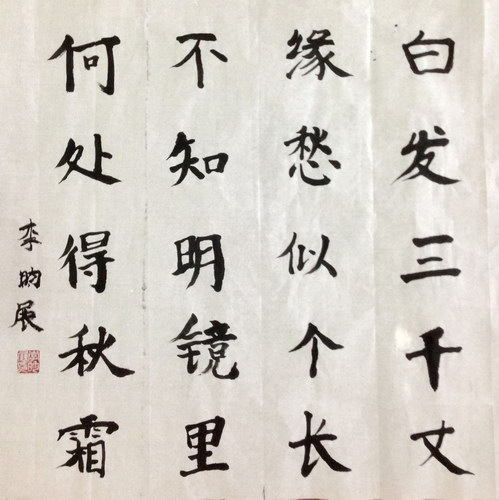 白发三千丈
缘愁似个长
不知明镜里
何处得秋霜
李昀展